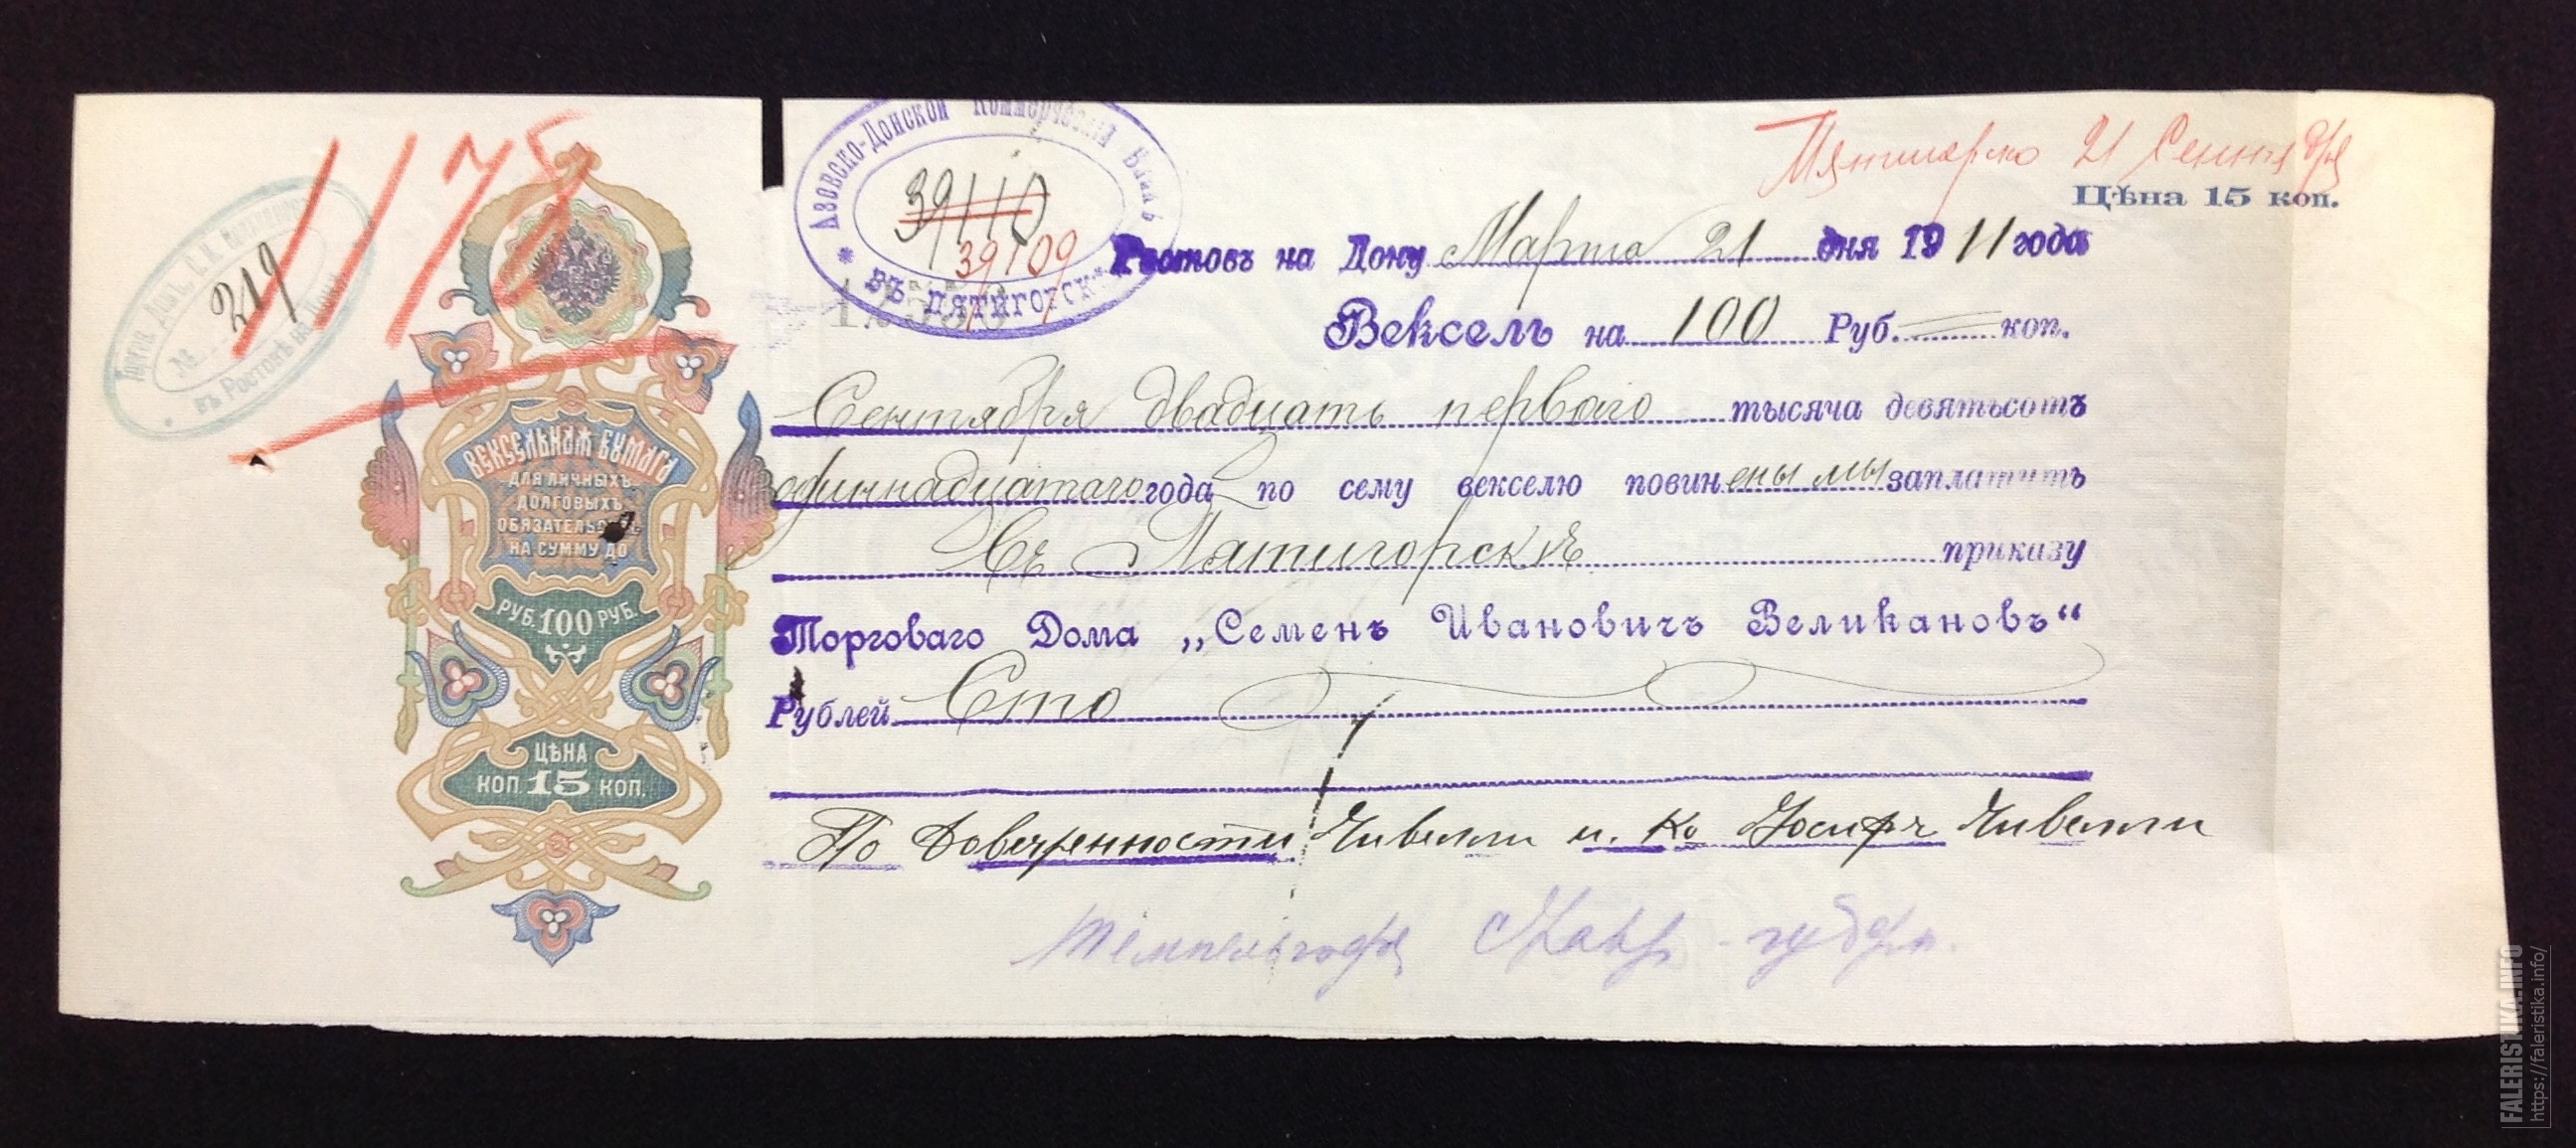 1178
Торгов. Домъ С. И. Великановъ
№ 219
въ Ростовѣ на Дону
ВЕКСЕЛЬНАЯ БУМАГА
ДЛЯ ЛИЧНЫХЪ
ДОЛГОВЫХЪ
ОБЯЗАТЕЛЬСТВЪ
НА СУММУ ДО
РУБ. 100 РУБ.
ЦѢНА
КОП. 15 КОП.
Азовско-Донской Коммерческій Банкъ
39110
39109
ВЪ ПЯТИГОРСКѢ
Пятигорскъ 21 Сентября
Цѣна 15 коп.
Ростовъ на Дону Марта 21 дня 1911 года
Вексель на 100 Руб. коп.
Сентября двадцать перваго тысяча девятьсотъ
одиннадцатаго года по сему векселю повинены мы заплатить
Въ Пятигорскѣ приказу
Торговаго Дома „Семенъ Ивановичъ Великановъ“
Рублей Сто
По Доверенности и Ко
Темпельгофъ Ставр-губерн.
FALERISTIKA.INFO
https://faleristika.info/